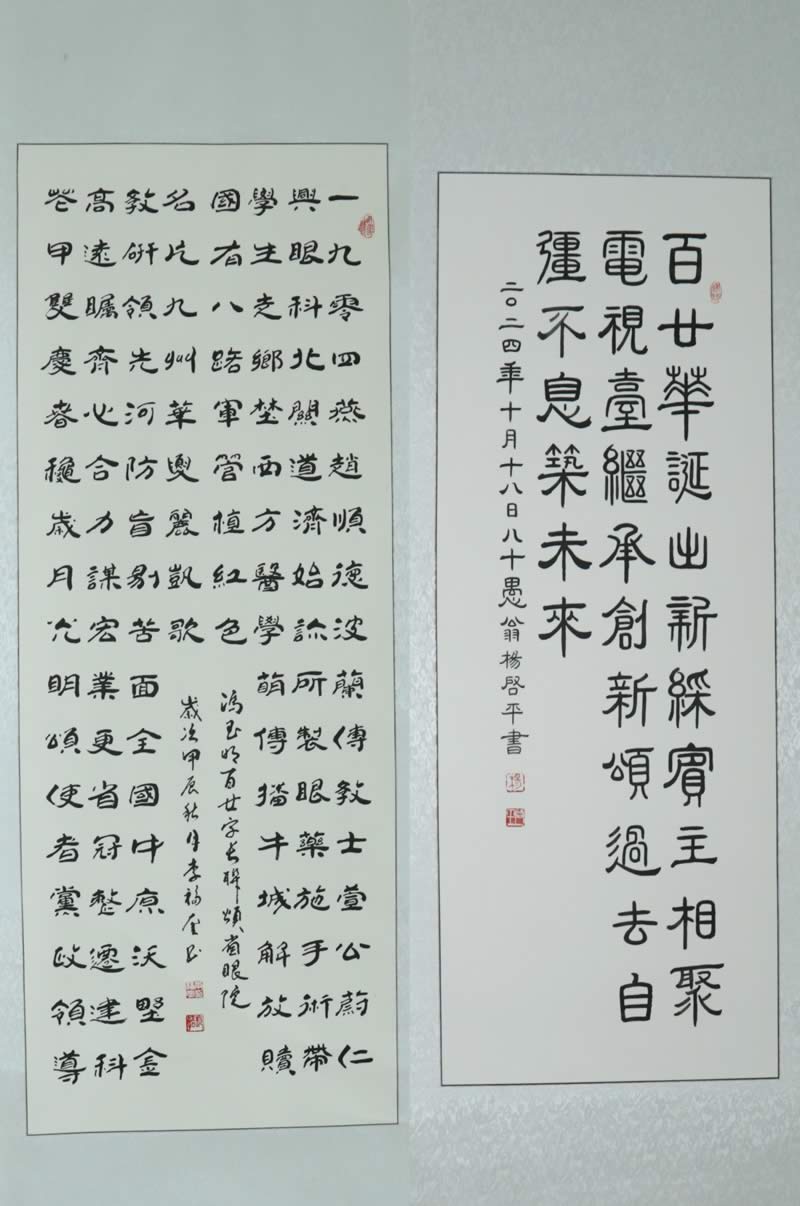 百廿華誕出新綵賓主相聚
電視臺繼承創新頌過去自
彊不息築未來
二〇二四年十月十八日八十愚翁楊啓平書
一九零四燕趙順德波蘭傳教士萱公蔚仁
興眼科北關道濟始診所製眼藥施手術帶
學生走鄉埜西方醫學萌傳播牛城解放贖
國有八路軍管植紅色
名片九州華夏麗凱歌
教研領先河防盲剔苦面全國中原沃野金
高遠矚齊心合力謀宏業更省冠整遷建科
花甲雙慶春穐歲月光明頌使者黨政領導
馮玉明百廿字長聯頌省眼院
歲次甲辰秋月李福奎書